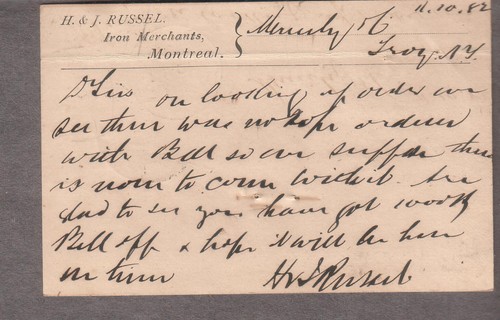 H. & J. RUSSEL.
Iron Merchants,
Montreal.
11.10.82
Meneely &
Troy. NY
D Sirs on looking up order we
see there was no rope ordered
with Bell so we suppose there
is none to come with it. Are
glad to see you have got
Bell off & hope it will be here
in time
H & J Russel